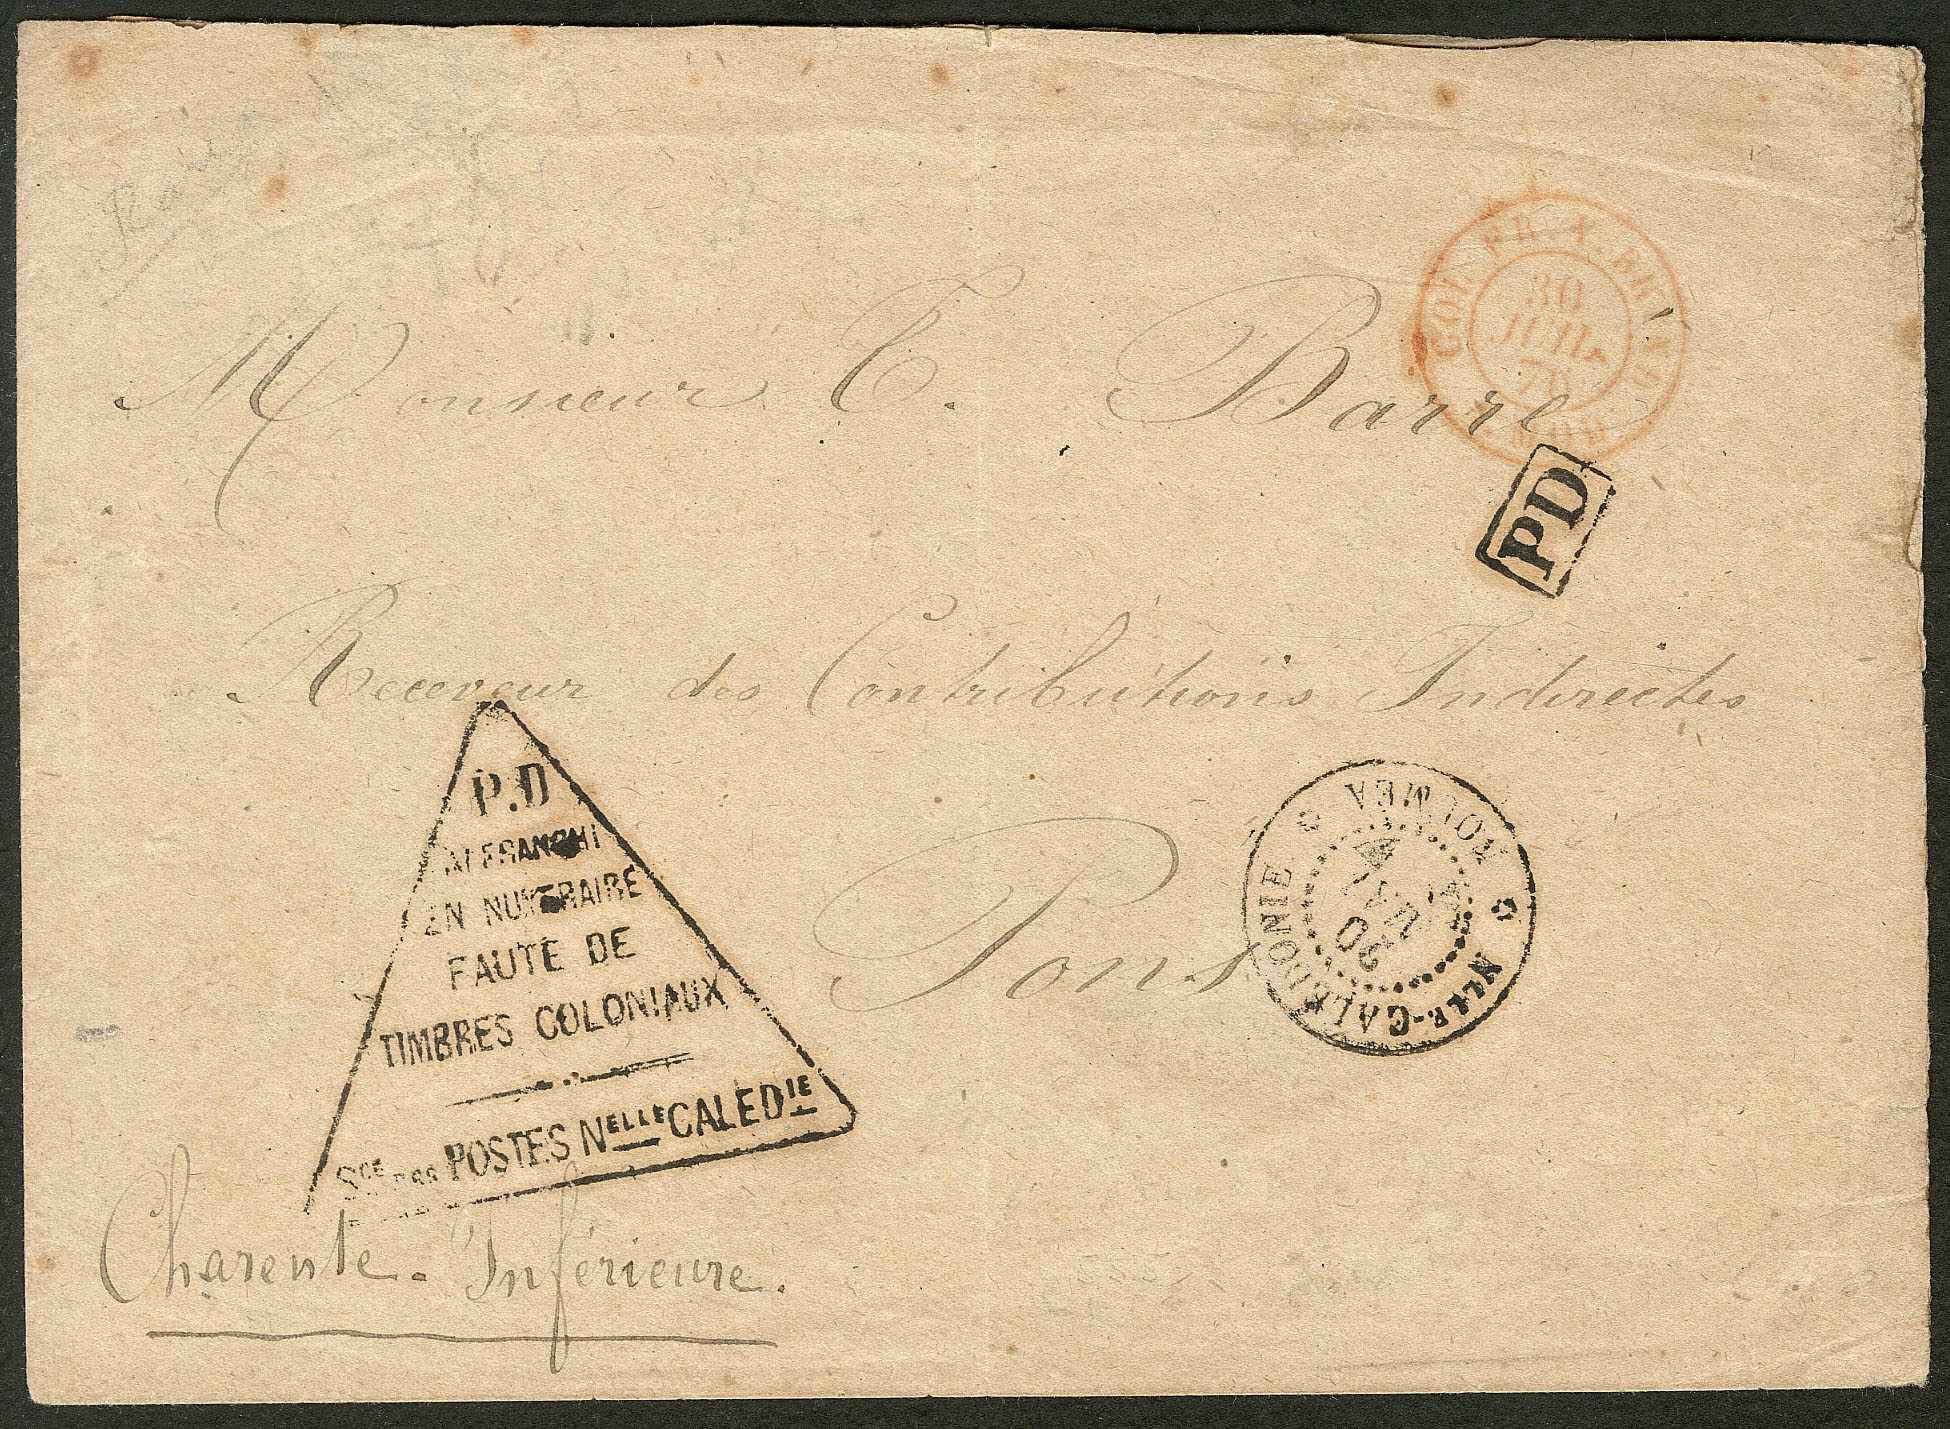 COL. FR. V. BRINDISI
30
JUIL.
76
Monsieur E. Barre
PD
Receveur des Contributions Indirectes
P.D
AFFRANCHI
EN NUMERAIRE
FAUTE DE
TIMBRES COLONIAUX
Sce DES POSTES Nelle CALEDie
Pons
NOUMEA
20
MAI
Nlle-CALEDONIE
Charente-Inférieure.